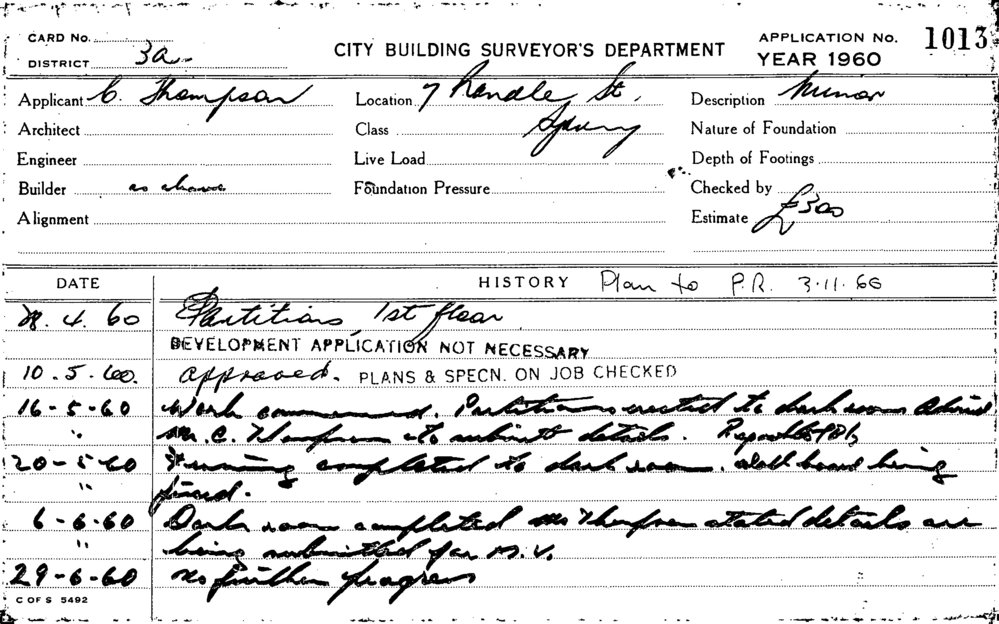 CARD No.
DISTRICT 3a
CITY BUILDING SURVEYOR'S DEPARTMENT
APPLICATION No. 1013
YEAR 1960
Applicant C. Thompson
Location 7 Randle St,
Description Minor
Architect
Class Spurry
Nature of Foundation
Engineer
Live Load
Depth of Footings
Builder as above
Foundation Pressure
Checked by
Alignment
Estimate £300
DATE
HISTORY Plan to P.R. 3.11.60
28. 4. 60 Partitions 1st floor
DEVELOPMENT APPLICATION NOT NECESSARY
10. 5. 60. approved. PLANS & SPECN. ON JOB CHECKED
16-5-60 Work commenced. Partitions erected to dark room Advised
" Mr. C. Thompson to submit details.
20-5-60 Framing completed to dark room. Wall board being
" fixed.
6-6-60 Dark room completed Mr Thompson stated details are
" being submitted for M.V.
29-6-60 No further progress
C OF S 5492